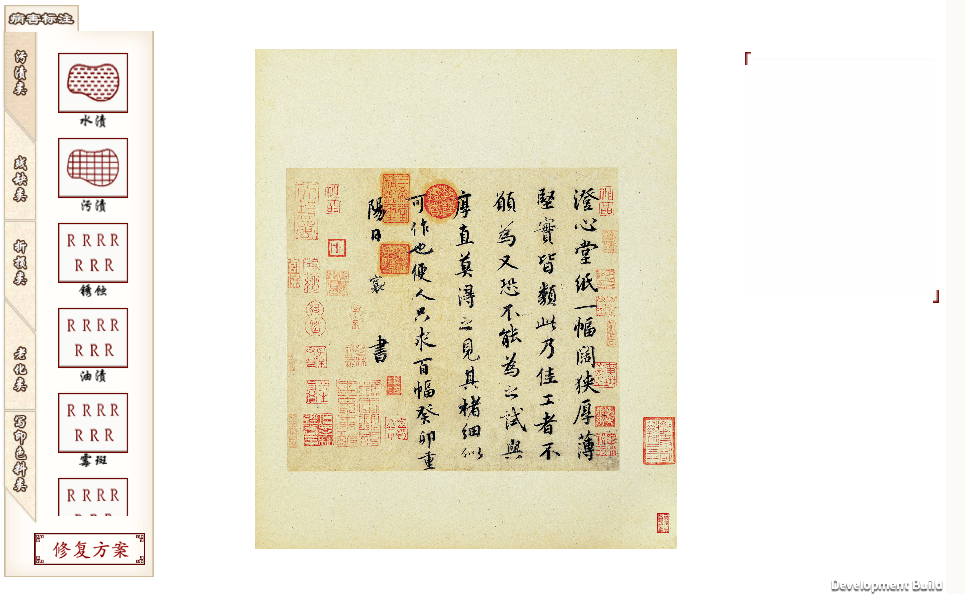 病害标注
污渍类
残缺类
折损类
老化类
写印色料类
水渍
污渍
R R R R
R R R
锈蚀
R R R R
R R R
油渍
R R R R
R R R
霉斑
R R R R
修复方案
澄心堂紙一幅闊狹厚薄
堅實皆類此乃佳工者不
願為又恐不能為之試與
厚直莫得之見其楮細似
可作也便人只求百幅癸卯重
陽日 襄 書
Development Build